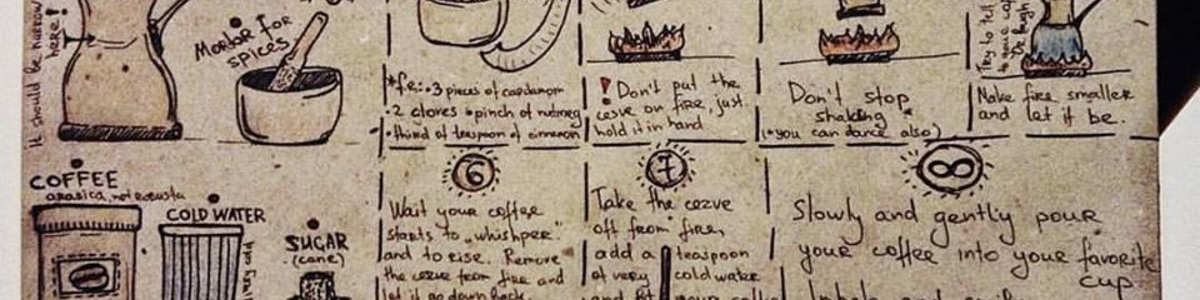 It should be narrow
here!
Mortar for
spices
*f.e.: • 3 pieces of cardamom
• 2 cloves • pinch of nutmeg
• third of teaspoon of cinnamon
! Don't put the
cezve on fire, just
hold it in hand
Don't stop
shaking
(*you can dance also)
Try to tell
to your
Make fire smaller
and let it be.
COFFEE
arabica, not robusta
COLD WATER
very cold
SUGAR
(cane)
6
Wait your coffee
starts to "whishper"
and to rise. Remove
the cezve from fire and
let it go down back.
7
Take the cezve
off from fire,
add a teaspoon
of very cold water
and let your coffee
8
Slowly and gently pour
your coffee into your favorite
cup